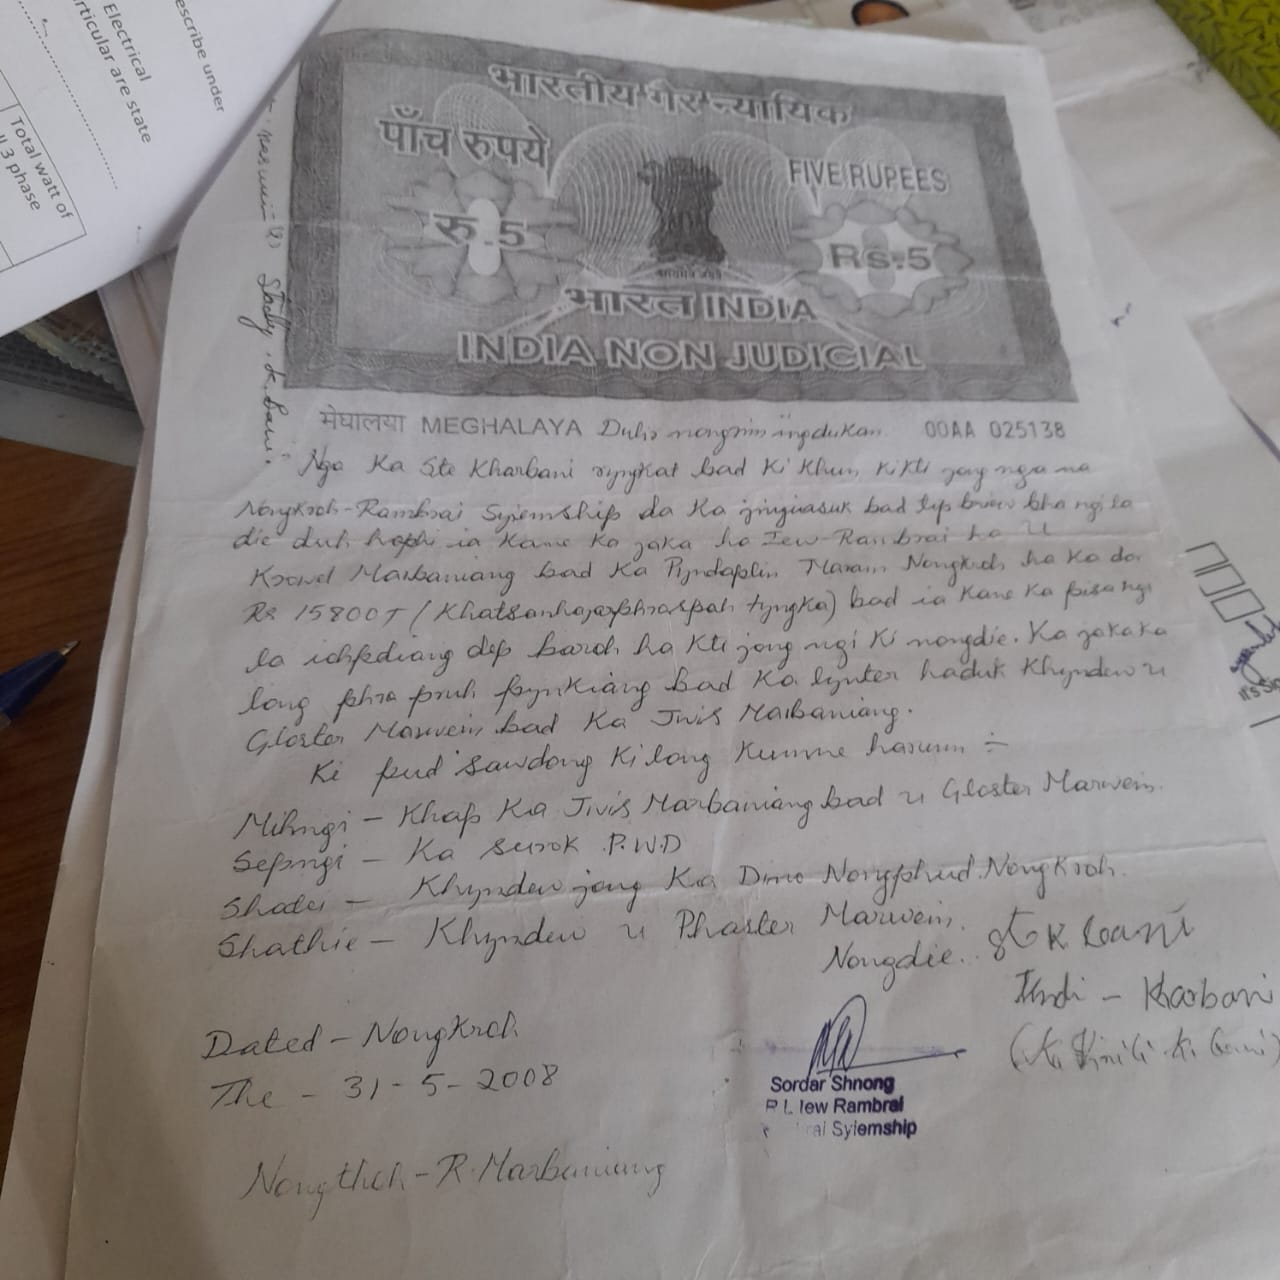 escribe under
Electrical
rticular are state
Total watt of
3 phase
भारतीय गैर न्यायिक
पाँच रुपये
FIVE RUPEES
रु.5
Rs.5
भारत INDIA
INDIA NON JUDICIAL
मेघालया MEGHALAYA Duh nongrim ingdukan 00AA 025138
Nga Ka Ste Kharbani ryngkat bad Ki Khun, Ki Kti jong nga na
Nongkroh-Rambrai Syiemship da Ka jingiasuk bad tip briew bha ngi la
die duh hophi ia Kane Ka jaka ha Iew-Rambrai ha U
Krowel Marbaniang bad Ka Pyndaplin Maram Nongkroh ha Ka dor
Rs 15800T (Khatsanhajarphraspah tyngka) bad ia Kane Ka pisa ngi
la ichkdiang dep baroh ha Kti jong ngi Ki nongdie. Ka jaka ka
long phra pruh pynkiang bad Ka lynter haduh Khyndew u
Gloster Marwein bad Ka Jwis Marbaniang.
Ki pud sawdong Ki long Kumne harum :-
Mihngi - Khap Ka Jwis Marbaniang bad u Gloster Marwein.
Sepngi - Ka surok P.W.D
Shatei - Khyndew jong Ka Dimo Nongphud Nongkroh.
Shathie - Khyndew u Phaster Marwein.
Nongdie.
Kharbani
Dated - Nongkroh
The - 31-5-2008
Sordar Shnong
Iew Rambrai
Syiemship
Nongthoh - R. Marbaniang